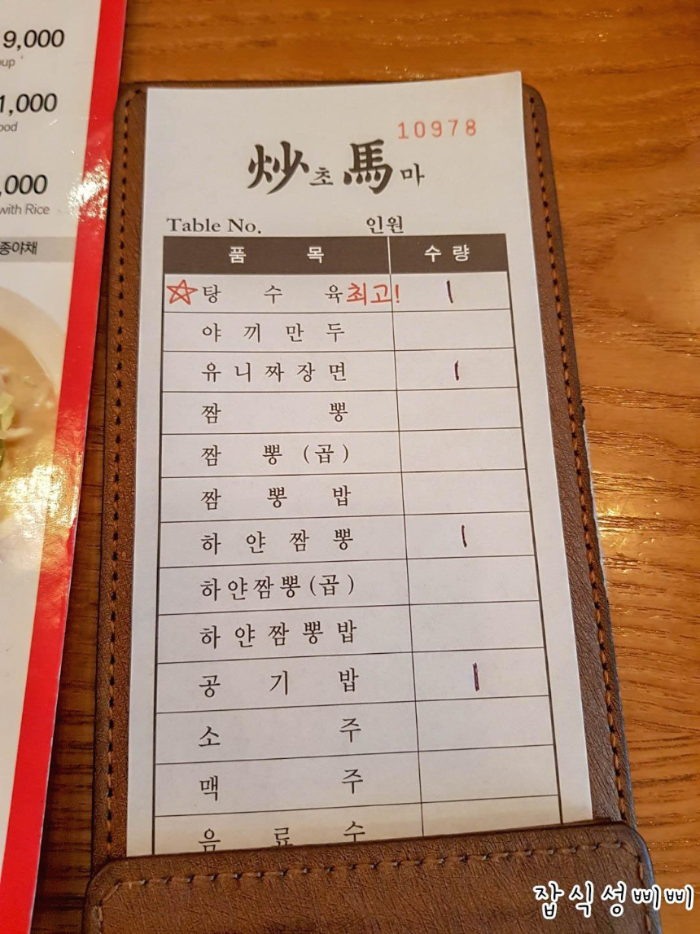 9,000
1,000
,000
with Rice
종야채
10978
炒초馬마
Table No. 인원
품 목 수 량
☆탕 수 육최고! 1
야 끼 만 두
유 니 짜 장 면 1
짬 뽕
짬 뽕 (곱)
짬 뽕 밥
하 얀 짬 뽕 1
하얀짬뽕(곱)
하 얀 짬 뽕 밥
공 기 밥 1
소 주
맥 주
음 료 수
잡식성삐삐